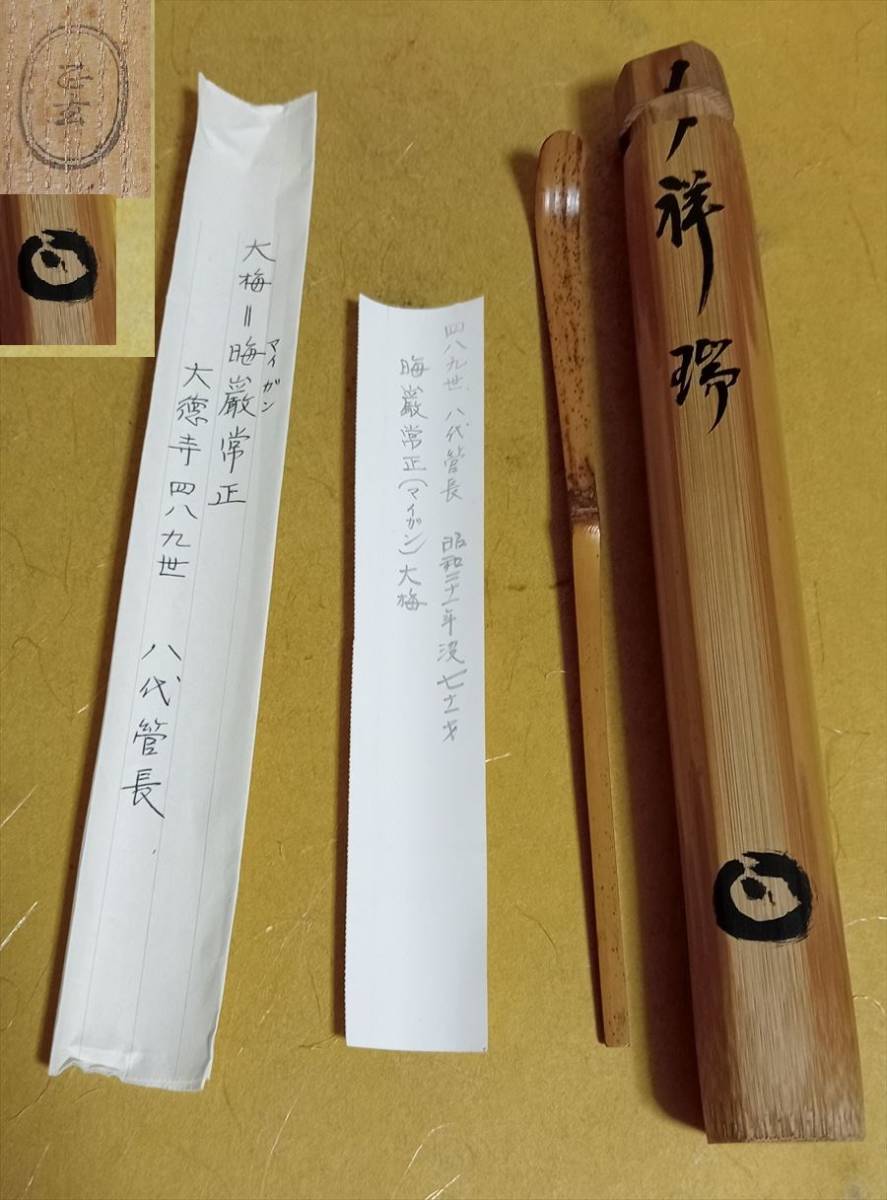 祥瑞
四八九世 八代管長 昭和二十一年没 七十一才
晦巌常正(マイガン)大梅
大梅=晦巌常正
マイガン
大徳寺四八九世 八代管長